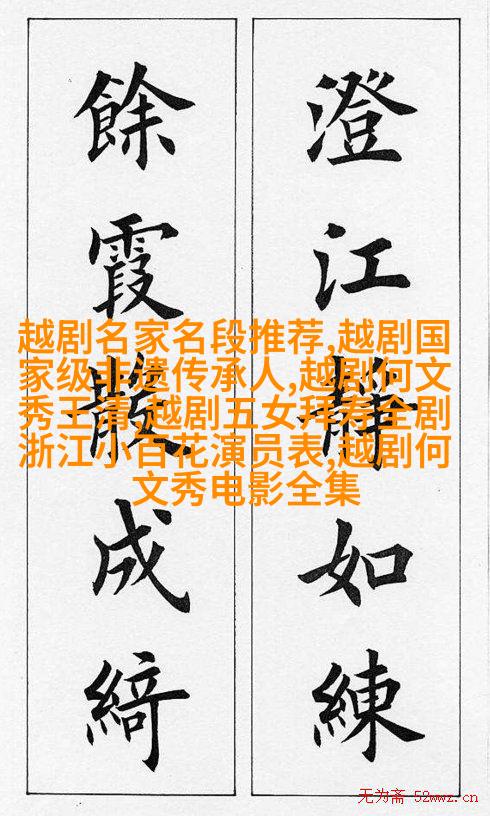 澄江靜如練
餘霞散成綺
越剧名家名段推荐,越剧国
家级非遗传承人,越剧何文
秀王清,越剧五女拜寿全剧
浙江小百花演员表,越剧何
文秀电影全集
无为斋 52wwz.cn